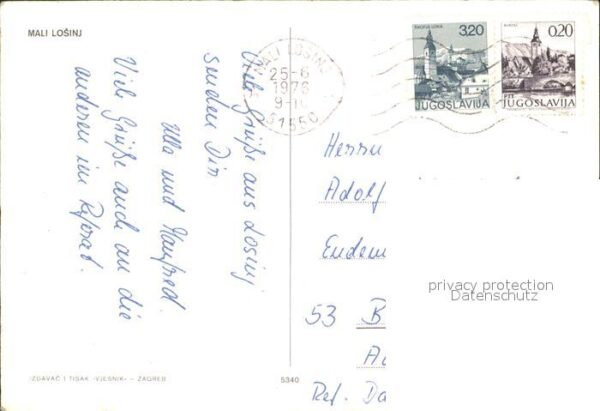 MALI LOŠINJ
Viele Grüße aus Losinj
senden Dir
Ulla und Manfred.
Viele Grüße auch an die
anderen im Referat.
MALI LOŠINJ
25-6
1976
9-10
51550
ŠKOFJA LOKA
3,20
JUGOSLAVIJA
BOHINJ
0,20
PTT
JUGOSLAVIJA
Herrn
Adolf
Endem
53 B
Ref. Da
privacy protection
Datenschutz
IZDAVAČ I TISAK »VJESNIK« — ZAGREB
5340